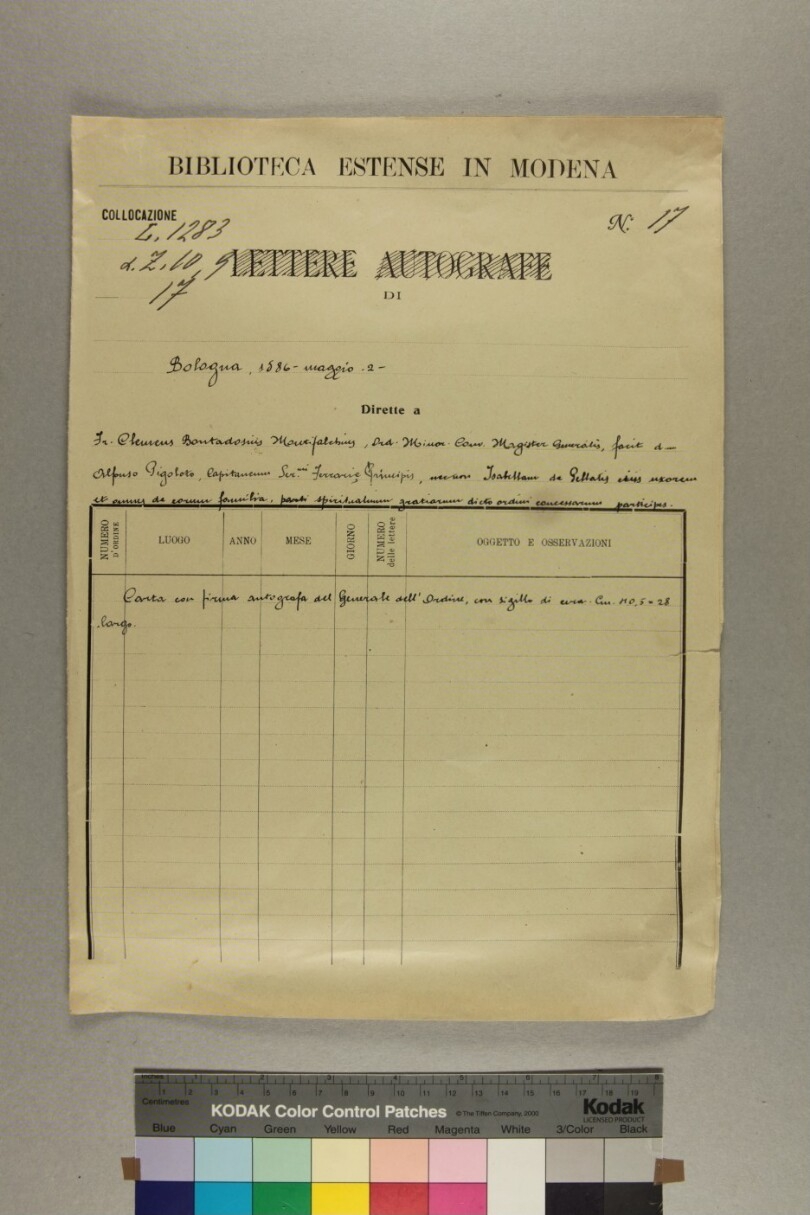 BIBLIOTECA ESTENSE IN MODENA
COLLOCAZIONE
L. 1283
α. Z. 10, 9
17
N: 17
LETTERE AUTOGRAFE
DI
Bologna, 1586 - maggio - 2 -
Dirette a
Fr. Clemens Bontadosius Montifalchius, Ord. Minor. Conv. Magister Generalis, facit d—
Alfonso Pigoloto, Capitaneum Ser.mi Ferrarie Principis, necnon Isabellam de eius uxorem
et omnes de eorum familia, spiritualium gratiarum dicto ordini concessarum participes.
NUMERO D'ORDINE
LUOGO
ANNO
MESE
GIORNO
NUMERO delle lettere
OGGETTO E OSSERVAZIONI
Carta con firma autografa del Generale dell'Ordine, con sigillo di cera. Cm. 28
largo.
Inches
Centimetres
KODAK Color Control Patches
© The Tiffen Company, 2000
Kodak
LICENSED PRODUCT
Blue Cyan Green Yellow Red Magenta White 3/Color Black